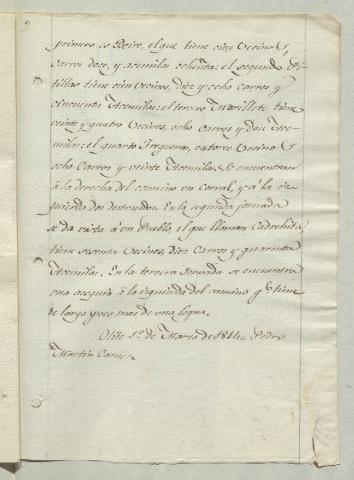 primero es Beire, el que tiene cien Vecinos,
carros doce, y acemilas ochenta: el segundo Pi-
tillas tiene cien vecinos, diez y ocho carros y
cincuenta Acemilas: el tercero Murillete tiene
veinte y quatro Vecinos, ocho carros y doce Ace-
milas: el quarto Traguenas, catorce Vecinos
ocho Carros y veinte Acemilas. Se encuentran
â la derecha del camino un corral, y â la iz-
quierda dos destruidos. En la segunda jornada
se da vista â un Pueblo, el que llaman Cadreita,
tiene sesenta Vecinos, diez Carros y quarenta
Acemilas. En la tercera Jornada se encuentra
una acequia â la izquierda del camino qe. tiene
de largo poco mas de una legua.
Olite 1º. de Marzo de 1814= Pedro
Martin